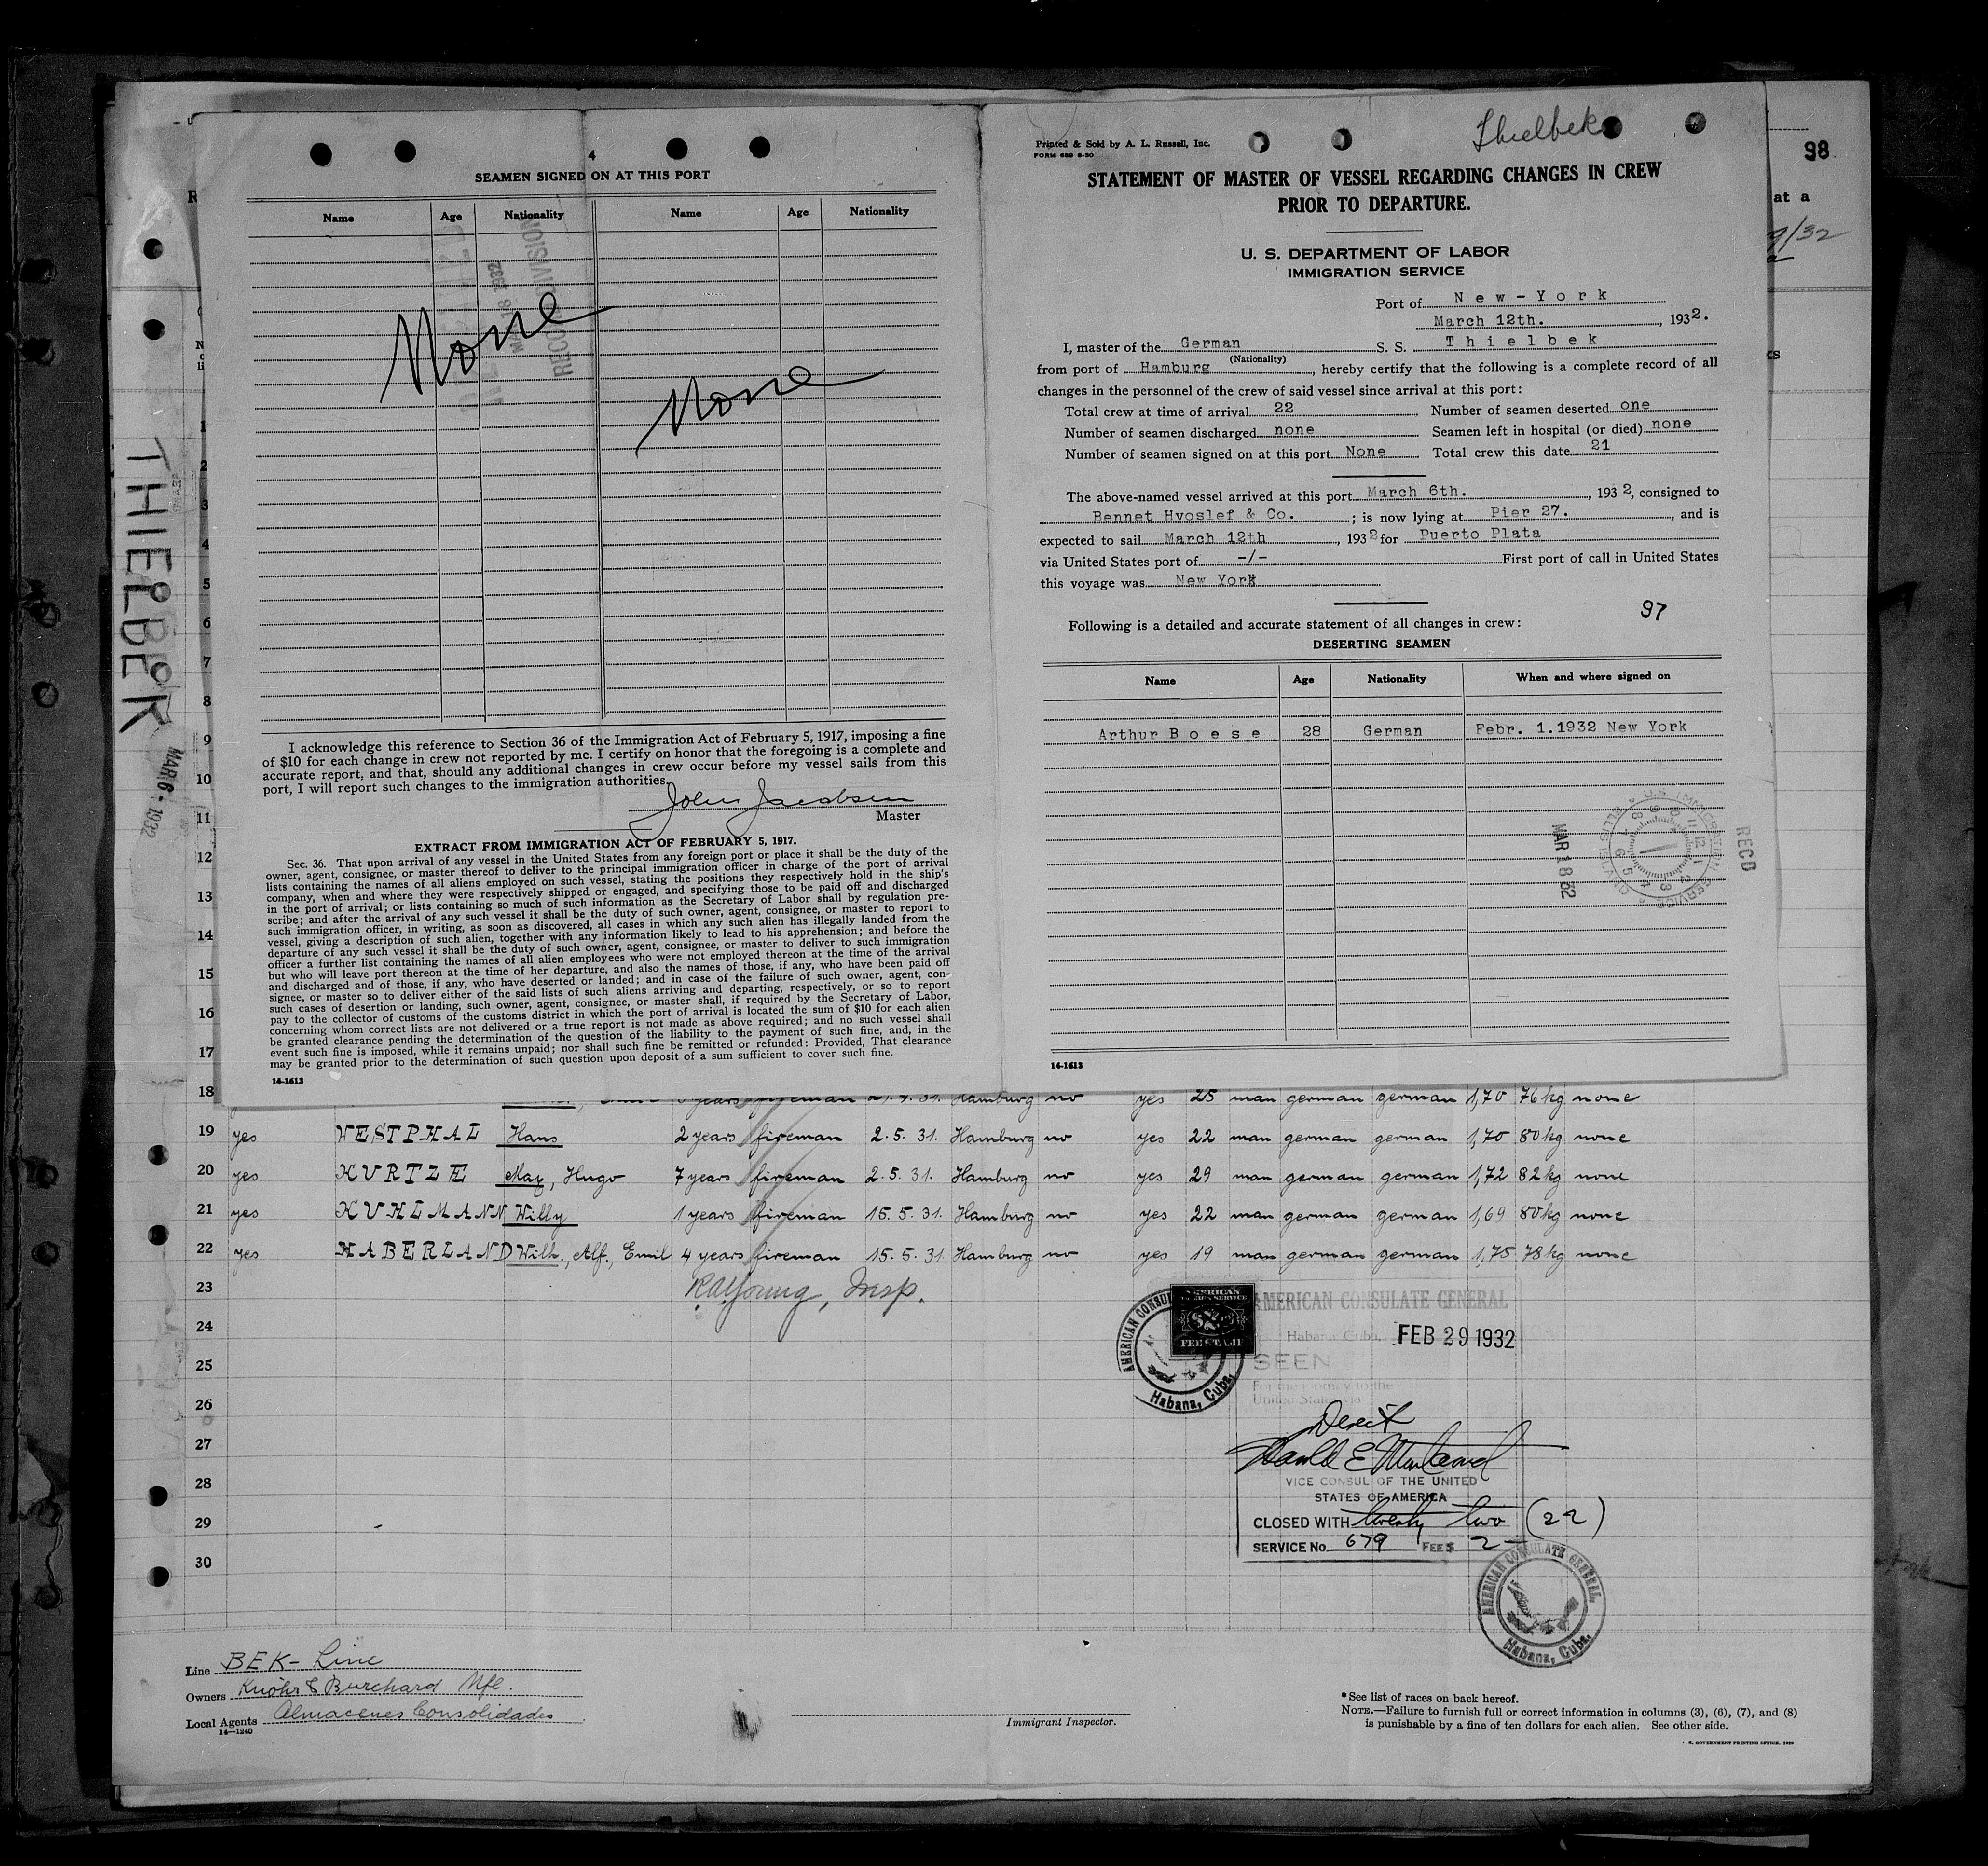 4
SEAMEN SIGNED ON AT THIS PORT
Name Age Nationality Name Age Nationality
None
None
RECORD DIVISION
MAR 18 1932
I acknowledge this reference to Section 36 of the Immigration Act of February 5, 1917, imposing a fine
of $10 for each change in crew not reported by me. I certify on honor that the foregoing is a complete and
accurate report, and that, should any additional changes in crew occur before my vessel sails from this
port, I will report such changes to the immigration authorities.
John Jacobsen
Master
EXTRACT FROM IMMIGRATION ACT OF FEBRUARY 5, 1917.
Sec. 36. That upon arrival of any vessel in the United States from any foreign port or place it shall be the duty of the
owner, agent, consignee, or master thereof to deliver to the principal immigration officer in charge of the port of arrival
lists containing the names of all aliens employed on such vessel, stating the positions they respectively hold in the ship's
company, when and where they were respectively shipped or engaged, and specifying those to be paid off and discharged
in the port of arrival; or lists containing so much of such information as the Secretary of Labor shall by regulation pre-
scribe; and after the arrival of any such vessel it shall be the duty of such owner, agent, consignee, or master to report to
such immigration officer, in writing, as soon as discovered, all cases in which any such alien has illegally landed from the
vessel, giving a description of such alien, together with any information likely to lead to his apprehension; and before the
departure of any such vessel it shall be the duty of such owner, agent, consignee, or master to deliver to such immigration
officer a further list containing the names of all alien employees who were not employed thereon at the time of the arrival
but who will leave port thereon at the time of her departure, and also the names of those, if any, who have been paid off
and discharged and of those, if any, who have deserted or landed; and in case of the failure of such owner, agent, con-
signee, or master so to deliver either of the said lists of such aliens arriving and departing, respectively, or so to report
such cases of desertion or landing, such owner, agent, consignee, or master shall, if required by the Secretary of Labor,
pay to the collector of customs of the customs district in which the port of arrival is located the sum of $10 for each alien
concerning whom correct lists are not delivered or a true report is not made as above required; and no such vessel shall
be granted clearance pending the determination of the question of the liability to the payment of such fine, and, in the
event such fine is imposed, while it remains unpaid; nor shall such fine be remitted or refunded: Provided, That clearance
may be granted prior to the determination of such question upon deposit of a sum sufficient to cover such fine.
14-1613
Thielbek
Printed & Sold by A. L. Russell, Inc.
FORM 689 6-30
STATEMENT OF MASTER OF VESSEL REGARDING CHANGES IN CREW
PRIOR TO DEPARTURE.
U. S. DEPARTMENT OF LABOR
IMMIGRATION SERVICE
Port of New-York
March 12th. , 1932.
I, master of the German S. S. Thielbek
(Nationality)
from port of Hamburg , hereby certify that the following is a complete record of all
changes in the personnel of the crew of said vessel since arrival at this port:
Total crew at time of arrival 22 Number of seamen deserted one
Number of seamen discharged none Seamen left in hospital (or died) none
Number of seamen signed on at this port None Total crew this date 21
The above-named vessel arrived at this port March 6th. , 1932, consigned to
Bennet Hvoslef & Co. ; is now lying at Pier 27. , and is
expected to sail March 12th , 1932 for Puerto Plata
via United States port of -/- First port of call in United States
this voyage was New York
97
Following is a detailed and accurate statement of all changes in crew:
DESERTING SEAMEN
Name Age Nationality When and where signed on
Arthur Boese 28 German Febr. 1.1932 New York
RECD
MAR 18 32
U.S. IMMIGRATION SERVICE
14-1613
98
at a
9/32
THIELBEK
MAR 6 - 1932
1
2
3
4
5
6
7
8
9
10
11
12
13
14
15
16
17
18 years fireman Hamburg no yes 25 man german german 1,70 76kg none
19 yes WESTPHAL Hans 2 years fireman 2.5.31. Hamburg no yes 22 man german german 1,70 80kg none
20 yes KURTZE Max, Hugo 7 years fireman 2.5.31. Hamburg no yes 29 man german german 1,72 82kg none
21 yes KUHLMANN Willy 1 years fireman 15.5.31. Hamburg no yes 22 man german german 1,69 80kg none
22 yes HABERLAND Wilh., Alf., Emil 4 years fireman 15.5.31. Hamburg no yes 19 man german german 1,75 78kg none
23
24
25
26
27
28
29
30
Young, Insp.
AMERICAN CONSULATE GENERAL
Habana, Cuba. FEB 29 1932
SEEN
For the journey to the
United States via
Direct
VICE CONSUL OF THE UNITED
STATES OF AMERICA
CLOSED WITH twenty two (22)
SERVICE No. 679 FEE $ 2-
AMERICAN CONSULATE GENERAL
Habana, Cuba.
Line BEK-Line
Owners Knöhr & Burchard Nfl.
Local Agents Almacenes Consolidados
14-1240
Immigrant Inspector.
*See list of races on back hereof.
NOTE.—Failure to furnish full or correct information in columns (3), (6), (7), and (8)
is punishable by a fine of ten dollars for each alien. See other side.
GOVERNMENT PRINTING OFFICE. 1929